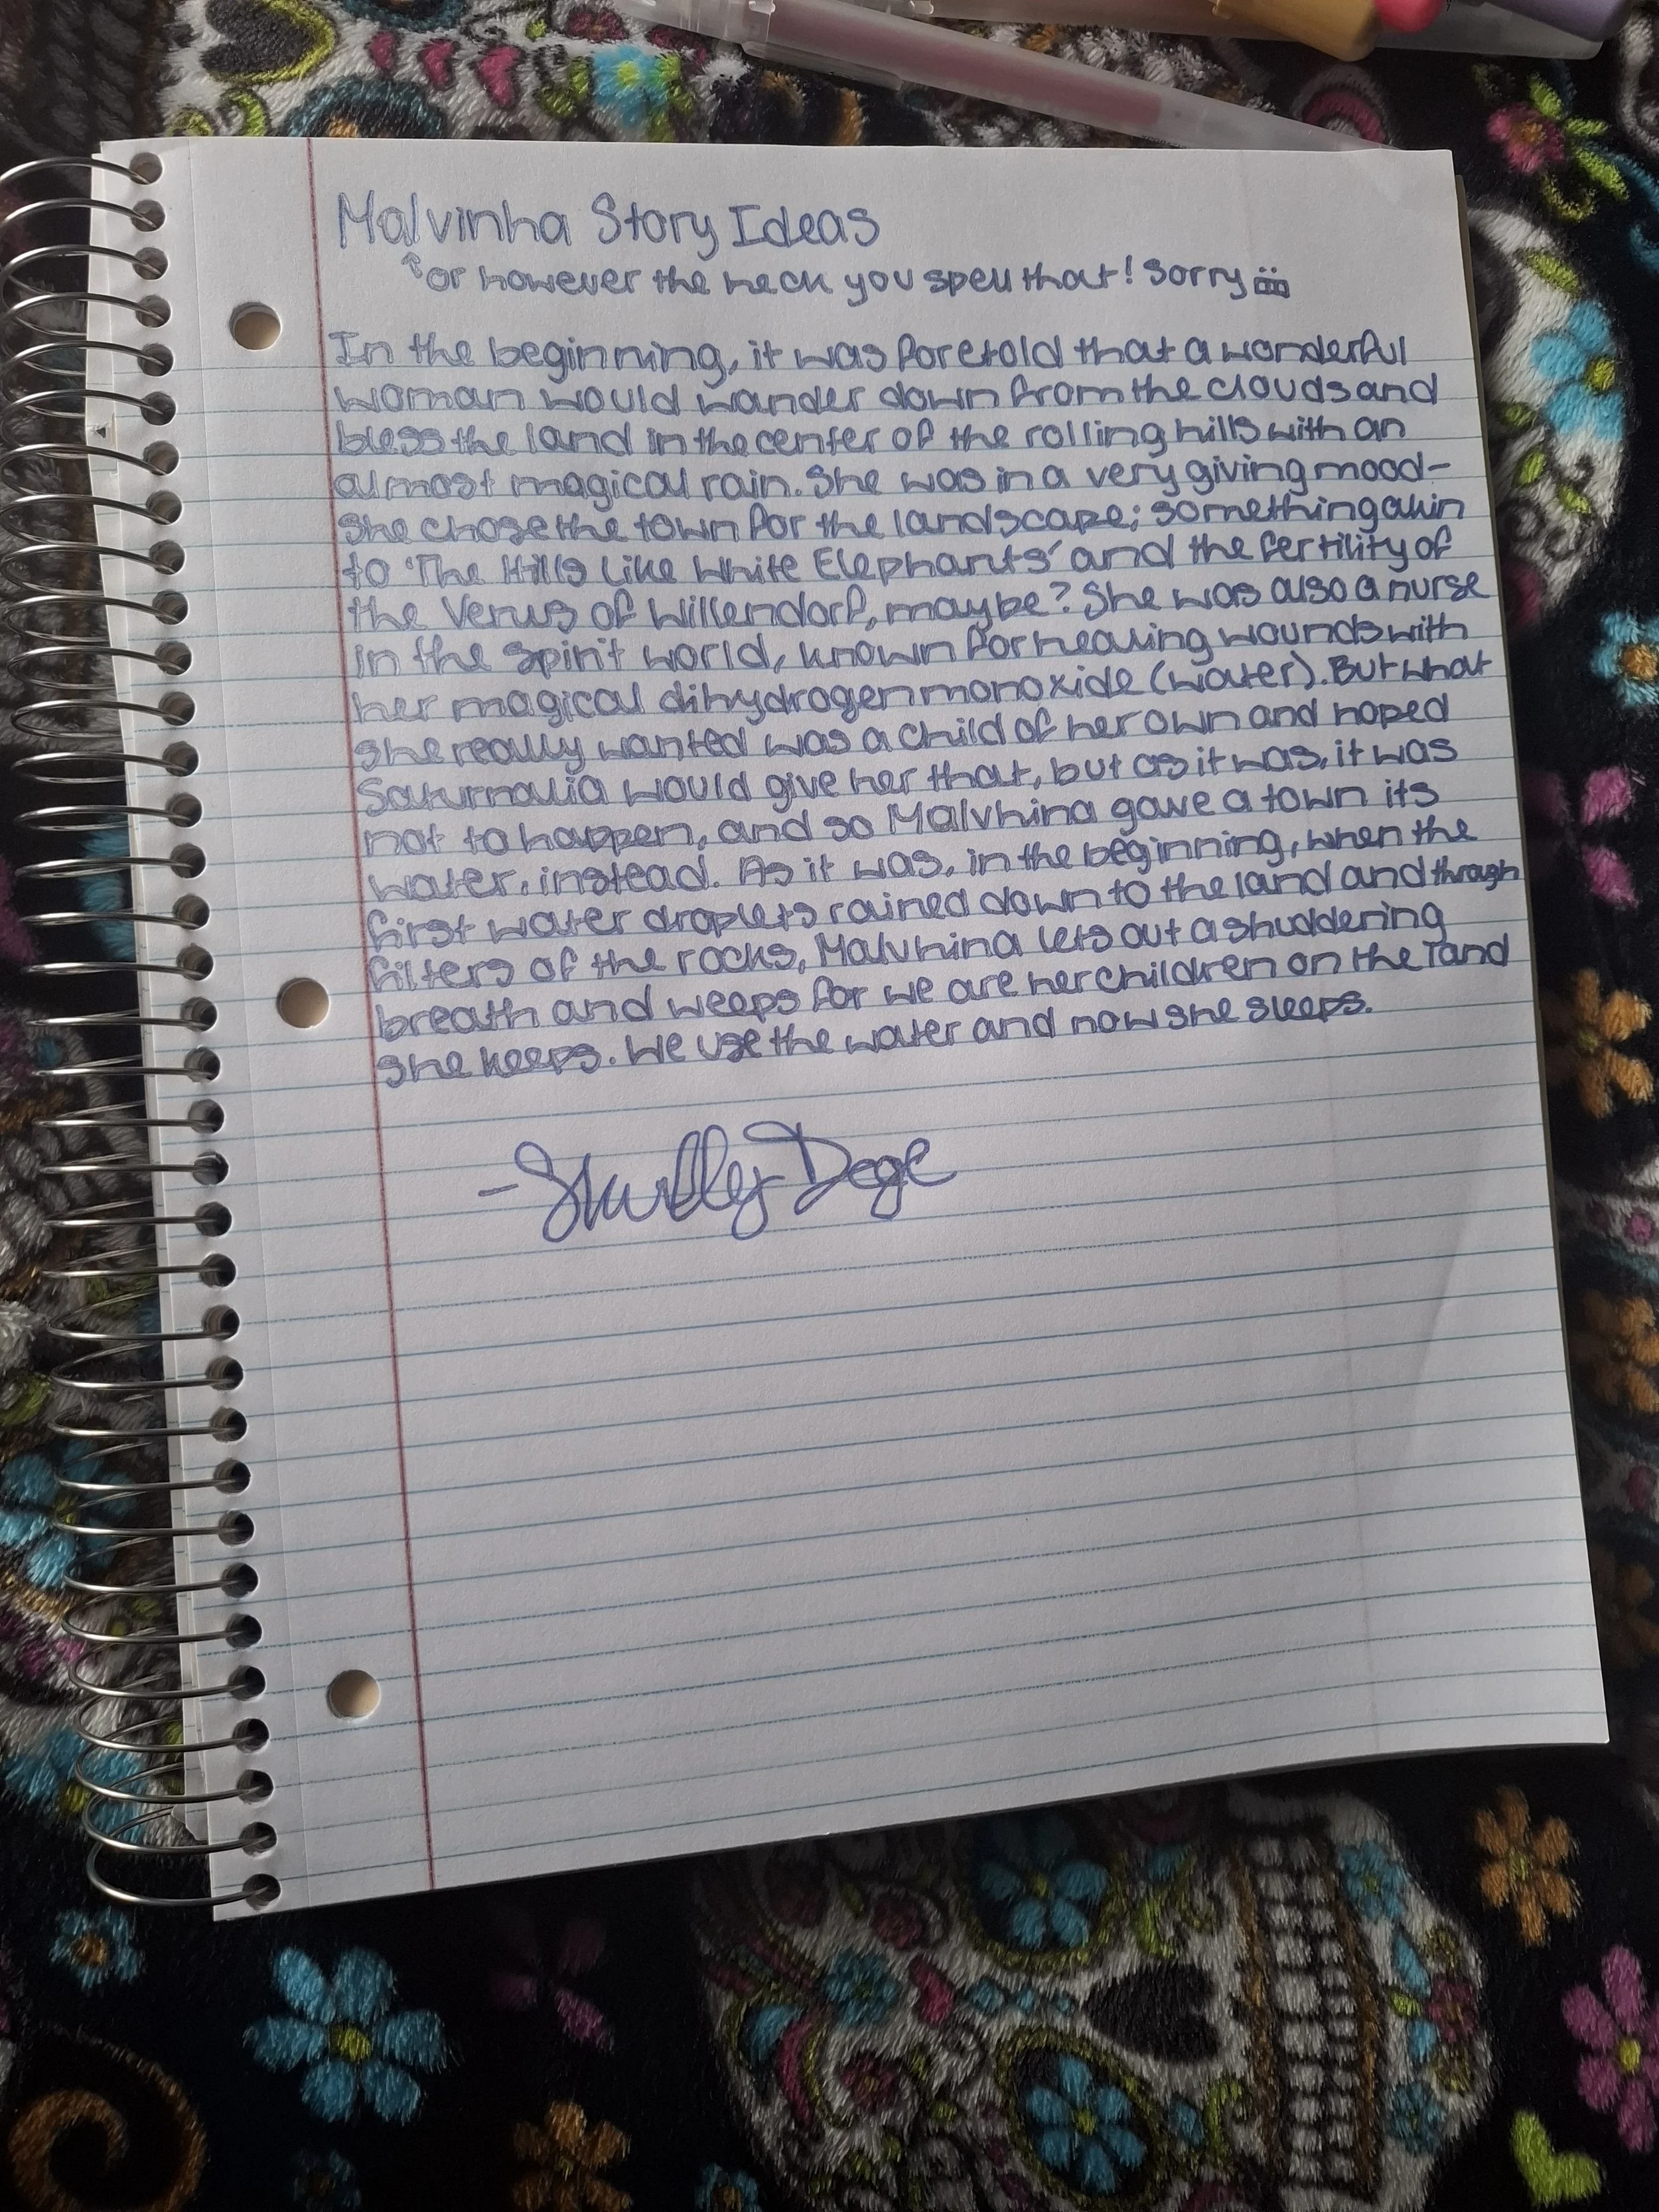 Malvinha Story Ideas
↑or however the heck you spell that! Sorry
In the beginning, it was foretold that a wonderful
woman would wander down from the clouds and
bless the land in the center of the rolling hills with an
almost magical rain. She was in a very giving mood-
she chose the town for the landscape; something akin
to 'The Hills Like White Elephants' and the fertility of
the Venus of Willendorf, maybe? She was also a nurse
in the spirit world, known for healing wounds with
her magical dihydrogen monoxide (water). But what
she really wanted was a child of her own and hoped
Saturnalia would give her that, but as it was, it was
not to happen, and so Malvhina gave a town its
water, instead. As it was, in the beginning, when the
first water droplets rained down to the land and through
filters of the rocks, Malvhina lets out a shuddering
breath and weeps for we are her children on the land
she keeps. We use the water and now she sleeps.